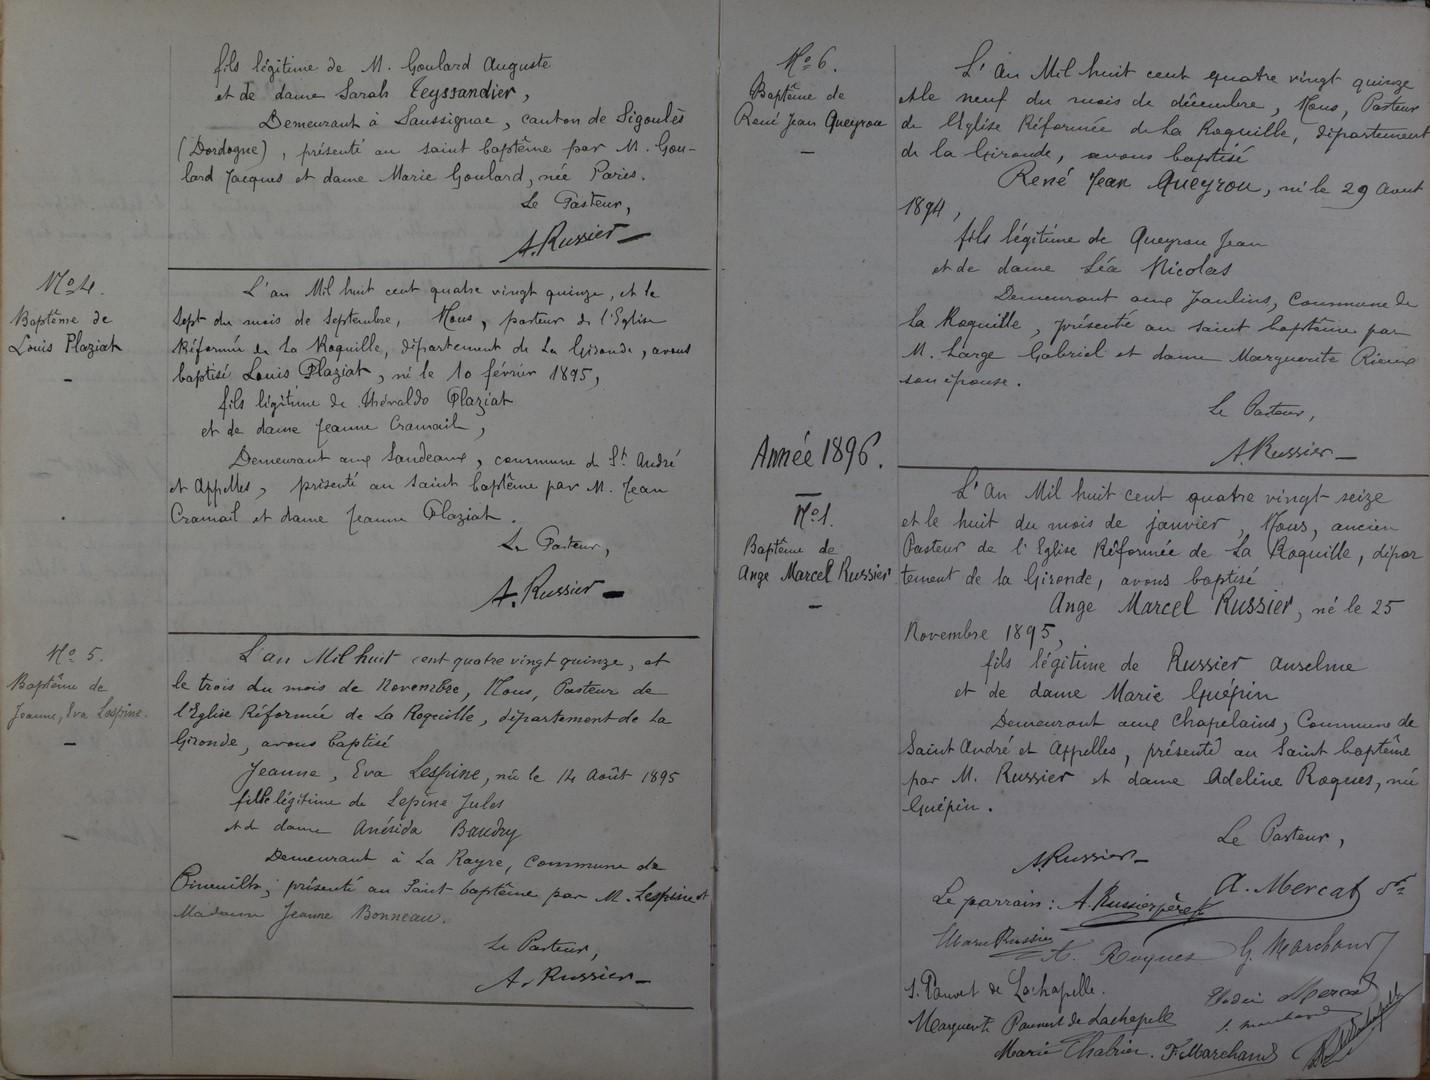 fils légitime de M. Goulard Auguste
et de dame Sarah Teyssandier,
Demeurant à Saussignac, canton de Sigoulès
(Dordogne), présenté au saint baptême par M. Gou-
lard Jacques et dame Marie Goulard, née Paris.
Le Pasteur,
A. Russier
No 4.
Baptême de
Louis Plaziat
L'an Mil huit cent quatre vingt quinze, et le
sept du mois de septembre, Nous, pasteur de l'Eglise
Réformée de La Roquille, département de La Gironde, avons
baptisé Louis Plaziat, né le 10 février 1895,
fils légitime de Théraldo Plaziat
et de dame Jeanne Cramail,
Demeurant aux Sandeaux, commune de St. André
et Appelles, présenté au saint baptême par M. Jean
Cramail et dame Jeanne Plaziat.
Le Pasteur,
A. Russier
No 5.
Baptême de
Jeanne, Eva Lespine.
L'an Mil huit cent quatre vingt quinze, et
le trois du mois de Novembre, Nous, Pasteur de
l'Eglise Réformée de La Roquille, département de La
Gironde, avons baptisé
Jeanne, Eva Lespine, née le 14 Août 1895
fille légitime de Lepine Jules
et de dame Anésida Baudry
Demeurant à La Rayre, Commune de
Pineuilh, présenté au Saint baptême par M. Lespine et
Madame Jeanne Bonneau.
Le Pasteur,
A. Russier
No 6.
Baptême de
René Jean Queyrou
L'An Mil huit cent quatre vingt quinze
et le neuf du mois de décembre, Nous, Pasteur
de l'Eglise Réformée de La Roquille, département
de la Gironde, avons baptisé
René Jean Queyrou, né le 29 Aout
1894,
fils légitime de Queyrou Jean
et de dame Léa Nicolas
Demeurant aux Jaulins, Commune de
la Roquille, présenté au saint baptême par
M. Large Gabriel et dame Marguerite Rieux
son épouse.
Le Pasteur,
A. Russier
Année 1896.
No 1.
Baptême de
Ange Marcel Russier
L'An Mil huit cent quatre vingt seize
et le huit du mois de janvier, Nous, ancien
Pasteur de l'Eglise Réformée de La Roquille, dépar
tement de la Gironde, avons baptisé
Ange Marcel Russier, né le 25
Novembre 1895,
fils légitime de Russier Anselme
et de dame Marie Guépin
Demeurant aux Chapelains, Commune de
Saint André et Appelles, présenté au Saint baptême
par M. Russier et dame Adeline Roques, née
Guépin.
Le Pasteur,
A. Russier
Le parrain: A. Russier père A. Mercat
Marie Russier A. Roques G. Marchand
S. Pauvert de Lachapelle.
Mercat
Marguerite Pauvert de Lachapelle
Marie Chabrier. F. Marchand